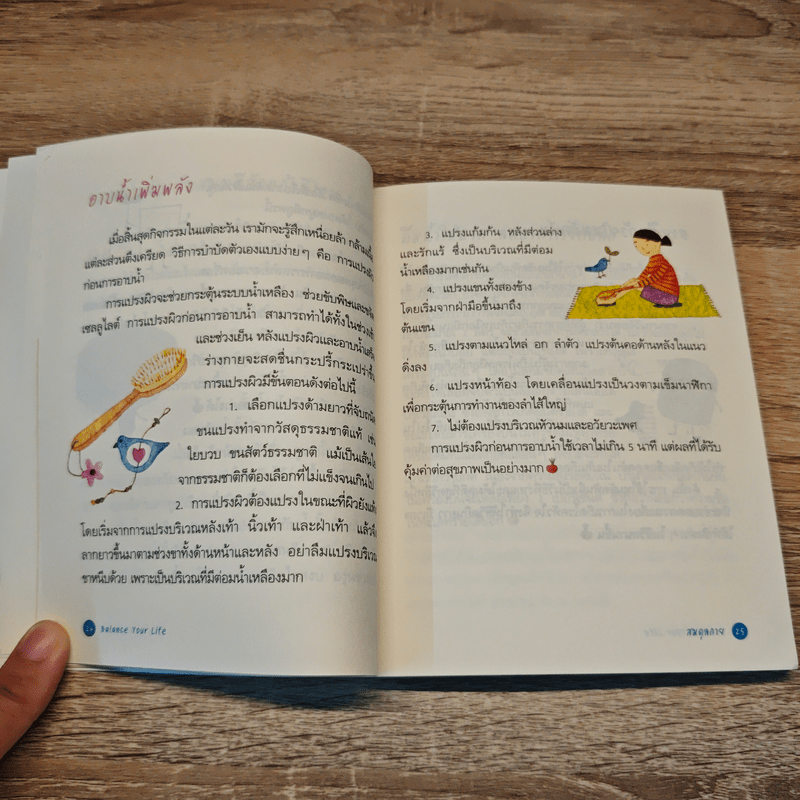 อาบน้ำเพิ่มพลัง
เมื่อสิ้นสุดกิจกรรมในแต่ละวัน เรามักจะรู้สึกเหนื่อยล้า
แต่ละส่วนตึงเครียด วิธีการบำบัดตัวเองแบบง่ายๆ คือ การแปรงผิว
ก่อนการอาบน้ำ
การแปรงผิวจะช่วยกระตุ้นระบบน้ำเหลือง ช่วยขับพิษและ
เซลลูไลต์ การแปรงผิวก่อนการอาบน้ำ สามารถทำได้ทั้งใน
และช่วงเย็น หลังแปรงผิวและอาบน้ำ
ร่างกายจะสดชื่นกระปรี้กระเปร่าขึ้น
การแปรงผิวมีขั้นตอนดังต่อไปนี้
1. เลือกแปรงด้ามยาวที่จับถนัด
ขนแปรงทำจากวัสดุธรรมชาติแท้ เช่น
ใยบวบ ขนสัตว์ธรรมชาติ แม้เป็นเส้นใย
จากธรรมชาติก็ต้องเลือกที่ไม่แข็งจนเกินไป
2. การแปรงผิวต้องแปรงในขณะที่ผิวยังแห้ง
โดยเริ่มจากการแปรงบริเวณหลังเท้า นิ้วเท้า และฝ่าเท้า แล้ว
ลากยาวขึ้นมาตามช่วงขาทั้งด้านหน้าและหลัง อย่าลืมแปรงบริเวณ
ขาหนีบด้วย เพราะเป็นบริเวณที่มีต่อมน้ำเหลืองมาก
24 Balance Your Life
3. แปรงแก้มก้น หลังส่วนล่าง
และรักแร้ ซึ่งเป็นบริเวณที่มีต่อม
น้ำเหลืองมากเช่นกัน
4. แปรงแขนทั้งสองข้าง
โดยเริ่มจากฝ่ามือขึ้นมาถึง
ต้นแขน
5. แปรงตามแนวไหล่ อก ลำตัว แปรงต้นคอด้านหลังในแนว
ดิ่งลง
6. แปรงหน้าท้อง โดยเคลื่อนแปรงเป็นวงตามเข็มนาฬิกา
เพื่อกระตุ้นการทำงานของลำไส้ใหญ่
7. ไม่ต้องแปรงบริเวณหัวนมและอวัยวะเพศ
การแปรงผิวก่อนการอาบน้ำใช้เวลาไม่เกิน 5 นาที แต่ผลที่ได้รับ
คุ้มค่าต่อสุขภาพเป็นอย่างมาก
สมดุลกาย 25